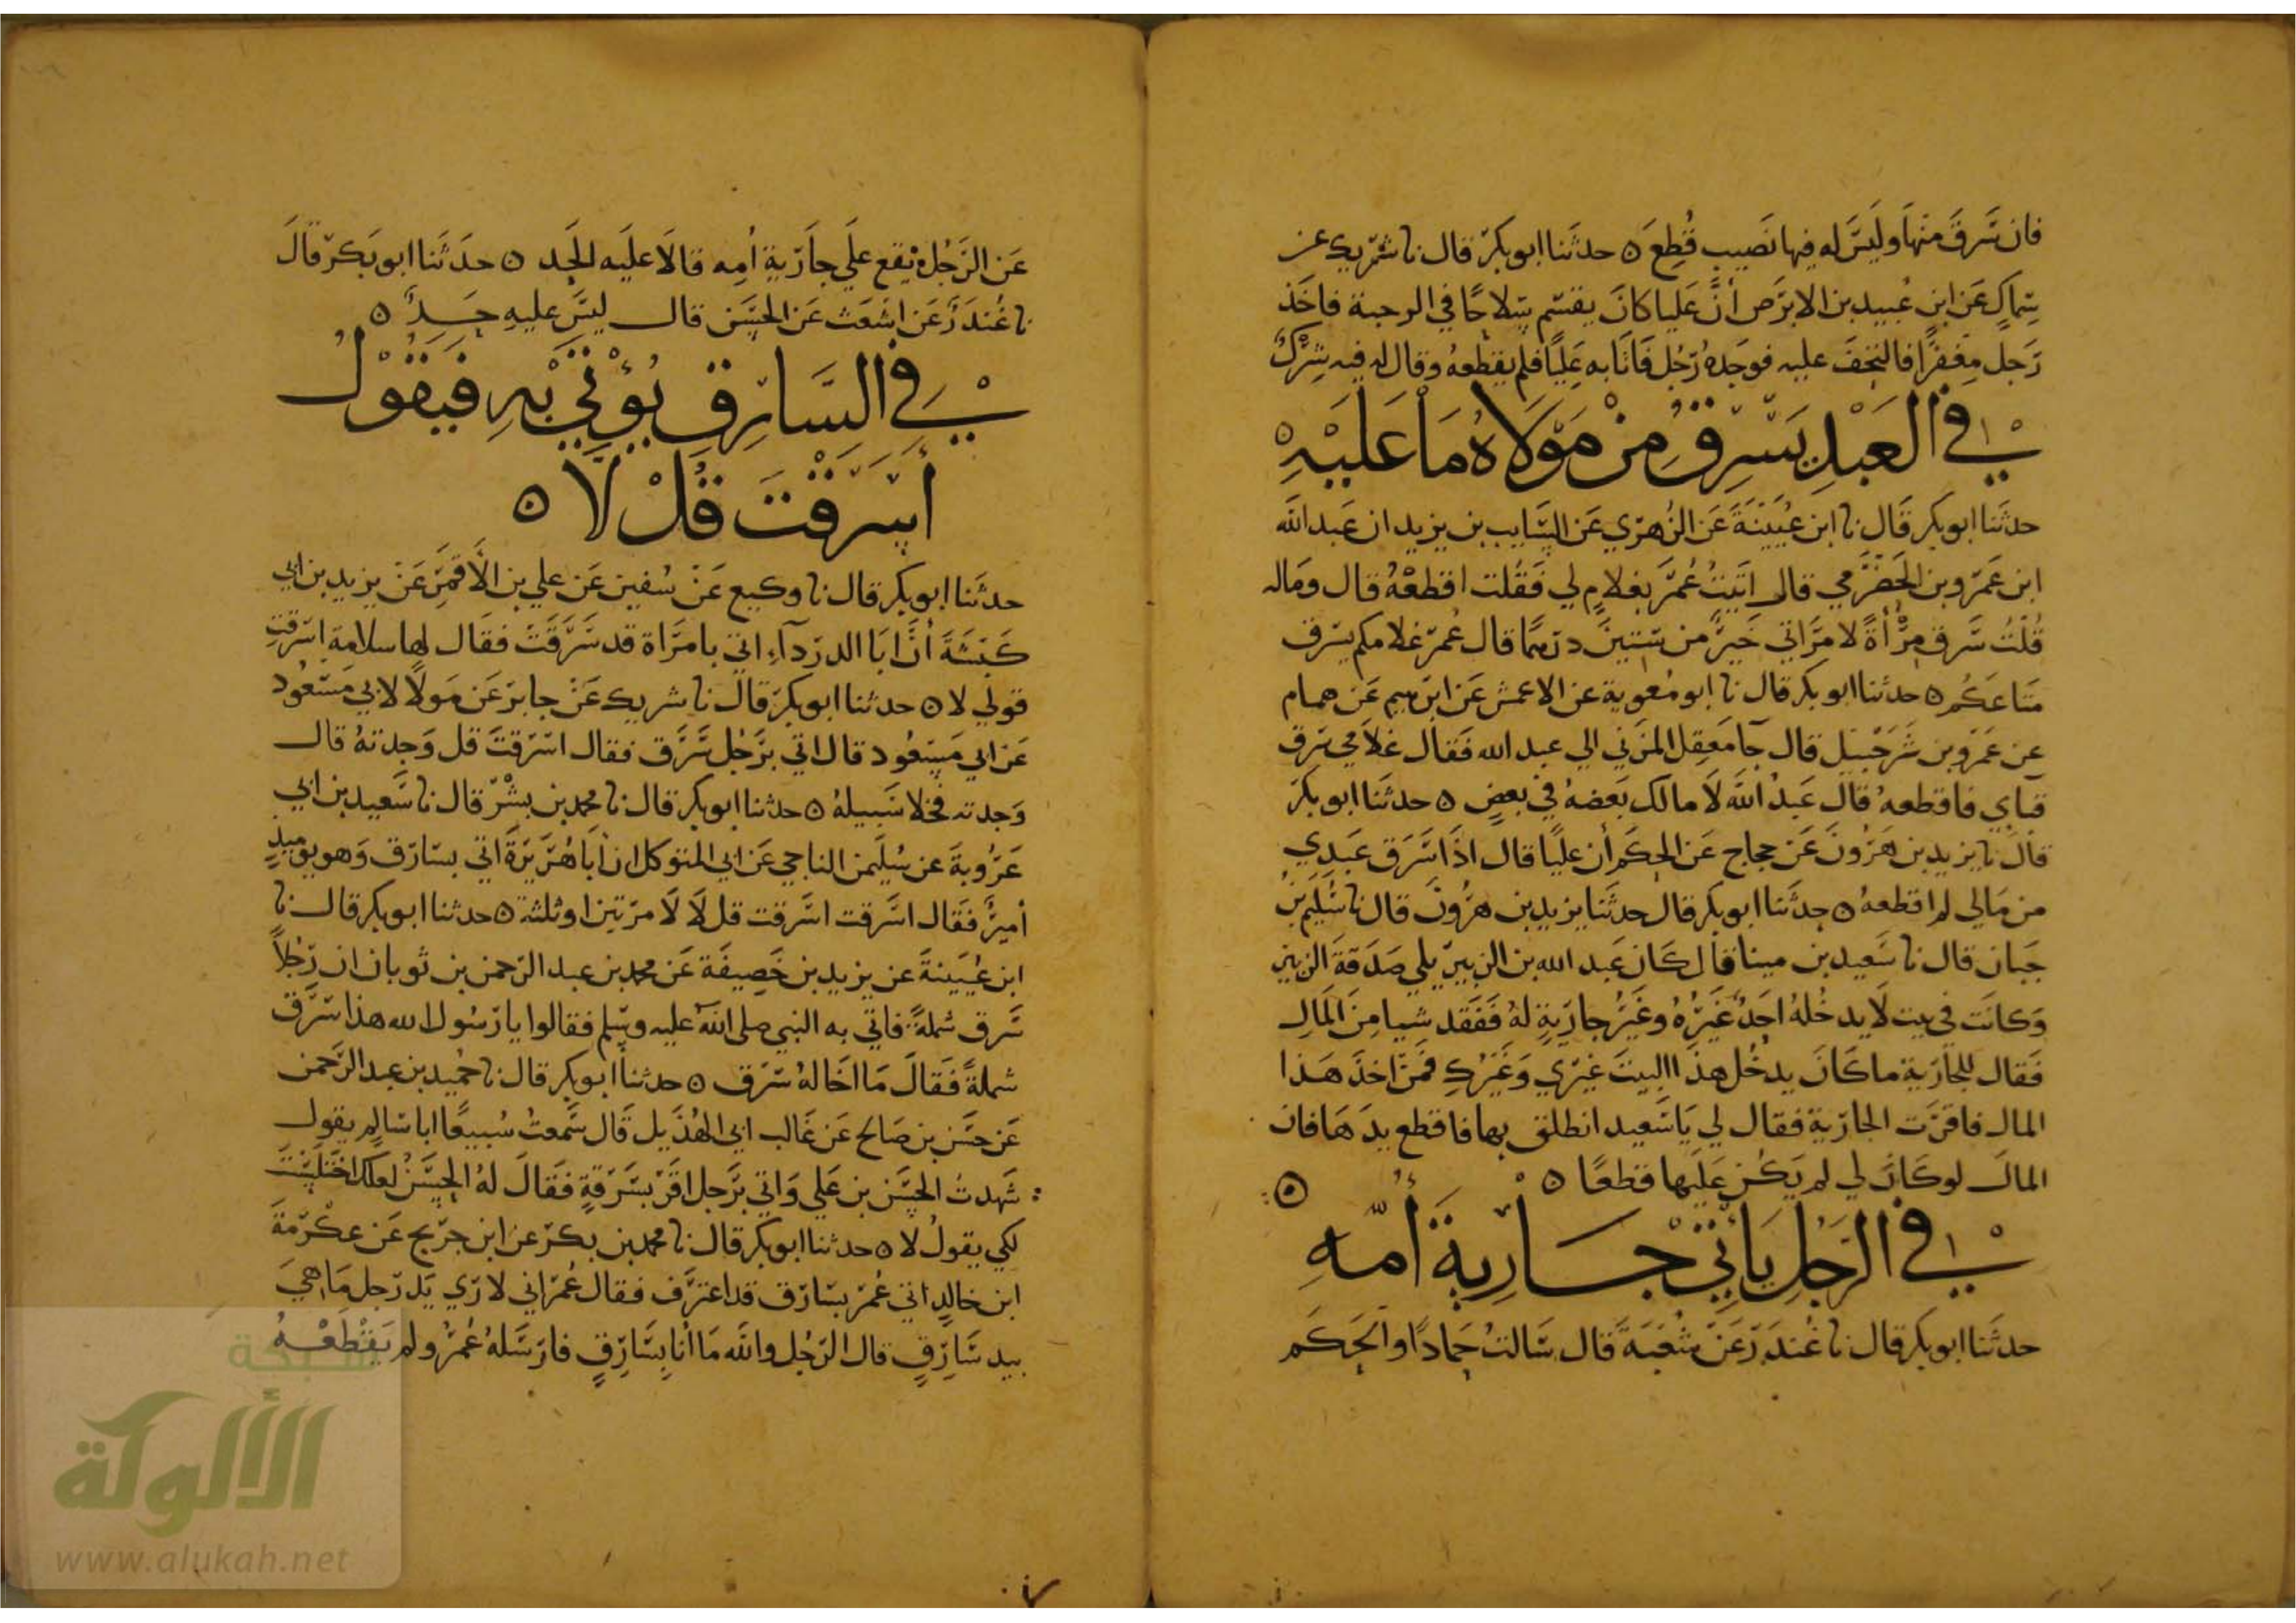 فان سَّرقَ منهَا وليَسَّ له فيها نصَيب قُطِعَ ۞ حدثَنا ابو بكرّ قال نا شرّيك عن
سِّماكٍ عَن ابن عُبيد بن الابرَص أنَّ عَليا كانَ يقسّم سِّلاحًا في الرحبة فاخَذ
رَجل مِغفرًا فالتحَفَ عليه فوجَدهُ رَّجُل فَاتَا به عَليًا فلم يقطعهُ وقال له فيه شِرْكٌ
في العَبْدِ يَسّرِقُ مِنْ مَوْلَاهُ مَا عَليْهِ ۞
حدثنا ابو بكر قَال نا ابن عُيَيْنَةَ عَن الزُهرّي عَن السَّايب بن يزيد ان عَبد الله
ابن عَمَرّو بن الحَضْرّمي قال اتَيتُ عُمَرّ بغلامٍ لي فَقُلت اقطعْهُ قال ومَاله
قُلتُ سَّرق مِرْأَةً لامرَّاتي خَيرٌ من سّتينَ درّهمًا قال عُمرّ غلامكم يسّرق
متَاعَكُم ۞ حدثنا ابو بكر قال نا ابو مُعوية عن الاعمش عَن ابرّهيم عَن همام
عن عَمَرّو بن شَرَحْبيَل قال جآ مَعقِل المزَني الي عبد الله فَقال غلامي سَرّق
قبَاي فاقطعهُ قال عَبدُ اللهَ لَا مالك بَعضهُ في بعضٍ ۞ حدثنَا ابو بكرّ
قالَ نا يزيد بن هَرُونَ عَن حجاج عَن الحكَم أن عليًا قال اذَا سَّرَق عَبدِي
من مَالي لم اقطعه ۞ حدَّثنا ابو بكر قال حدثَنا يزيد بن هرُّونَ قال نا سُّليم بن
حَبان قال نا سَعيد بن مينا قال كَان عَبد الله بن الزبيرّ يلي صَدَقةَ الزبيرّ
وَكانَت في بيت لَا يدخُلهُ احَدٌ غَيرُّهُ وغَيرُّ جارّيةٍ لهُ فَفَقد شَيا مِنَ المَالِ
فَقال للجارّية ما كانَ يدخُل هذَا البيتَ غيرّي وَغَيرّكِ فمَن اخذَ هَذا
المال فاقرّت الجارّية فقال لي يَا سَعيد انطلق بها فاقطع يدَهَا فان
المالَ لو كانَ لي لم يَكن عَليها قطعًا ۞
في الرَّجلِ يَأتيِ جَارية أُمّهِ
حدثَنا ابو بكر قال نا غُندَرّ عَن شُعبَةَ قال سَالتُ حَمادًا والحَكَم
عَن الرَّجُل يَقع علَي جاَرّية اُمِه قالَا علَيه الحَد ۞ حدَثَنا ابو بَكرّ قالَ
نا غُندَرّ عَن اشعَث عَن الحَسَّن قال ليسَّ عليهِ حَدٌ ۞
في السَّارّقِ يُؤتيَ بْهِ فيَقوْلُ
أسَرَقْتَ قُلْ لَا ۞
حدثَنا ابو بكر قال نا وكيع عَن سُفين عَن علي بن الأَقمَرّ عَن يزيد بن ابي
كَبْشَةَ أنَّ ابَا الدرّدآءِ اتي بامرَّاة قد سَّرَقَتَ فقَال لها سلامة اسّرقتِ
قولي لا ۞ حدثنا ابو بكرّ قالَ نا شريك عَن جابرّ عَن مَولًا لابي مَسّعُود
عَن ابي مَسّعُود قال اتي برَّجُل سَّرَّق فقال اسّرَقتَ قل وَجدتهُ قال
وَجدته فخلا سَبيلهُ ۞ حدثنا ابو بكر قال نا محمد بن بشْرّ قال نا سَّعيد بن ابي
عَرُوبةَ عن سُليَمن الناجي عَن ابي المتوكل ان أبَا هُرَّيرّةَ اتي بسّارّق وَهو يوَميذٍ
أميرٌّ فقَال اسَّرقت اسَّرقت قل لَا لَا مرّتين او ثلثة ۞ حدثنا ابو بكر قال نا
ابن عُيَينةَ عن يزيد بن خَصِيفَة عَن محمد بن عبد الرّحمن بن ثوبان ان رّجُلًا
سَّرق شملَةً فاتي به النبي صلى اللهَ عليه وسّلم فقالوا يا رّسُول الله هذا سَرَّق
شملةً فَقالَ مَا اخَالهُ سَرّق ۞ حدثنا أبو بكر قال نا حُميد بن عبد الرَّحمن
عَن حسَّن بن صَالح عَن غَالب ابي الهُذَيل قَال سَّمعتُ سُبيعًا ابا سّالم يقول
شَهدتُ الحسَّن بن عَلي وَاتي برَّجل اقرّ بسَّرقةٍ فقَالَ لهُ الحسَّنُ لعلك اختلسّتَ
لكي يقولُ لا ۞ حدثنا ابو بكر قال نا محمد بن بكرّ عن ابن جرّيج عَن عكْرّمَةَ
ابن خالدٍ اتي عُمرّ بسّارّق قد اعترَّف فقال عُمرّ اني لارّي يَد رّجل مَا هيَ
بيد سَّارّقٍ قال الرّجُل واللهَ مَا أنا بسَّارّقٍ فارّسَّلهُ عُمرُّ ولم يَقطَعْهُ
شبكة
الألوكة
www.alukah.net